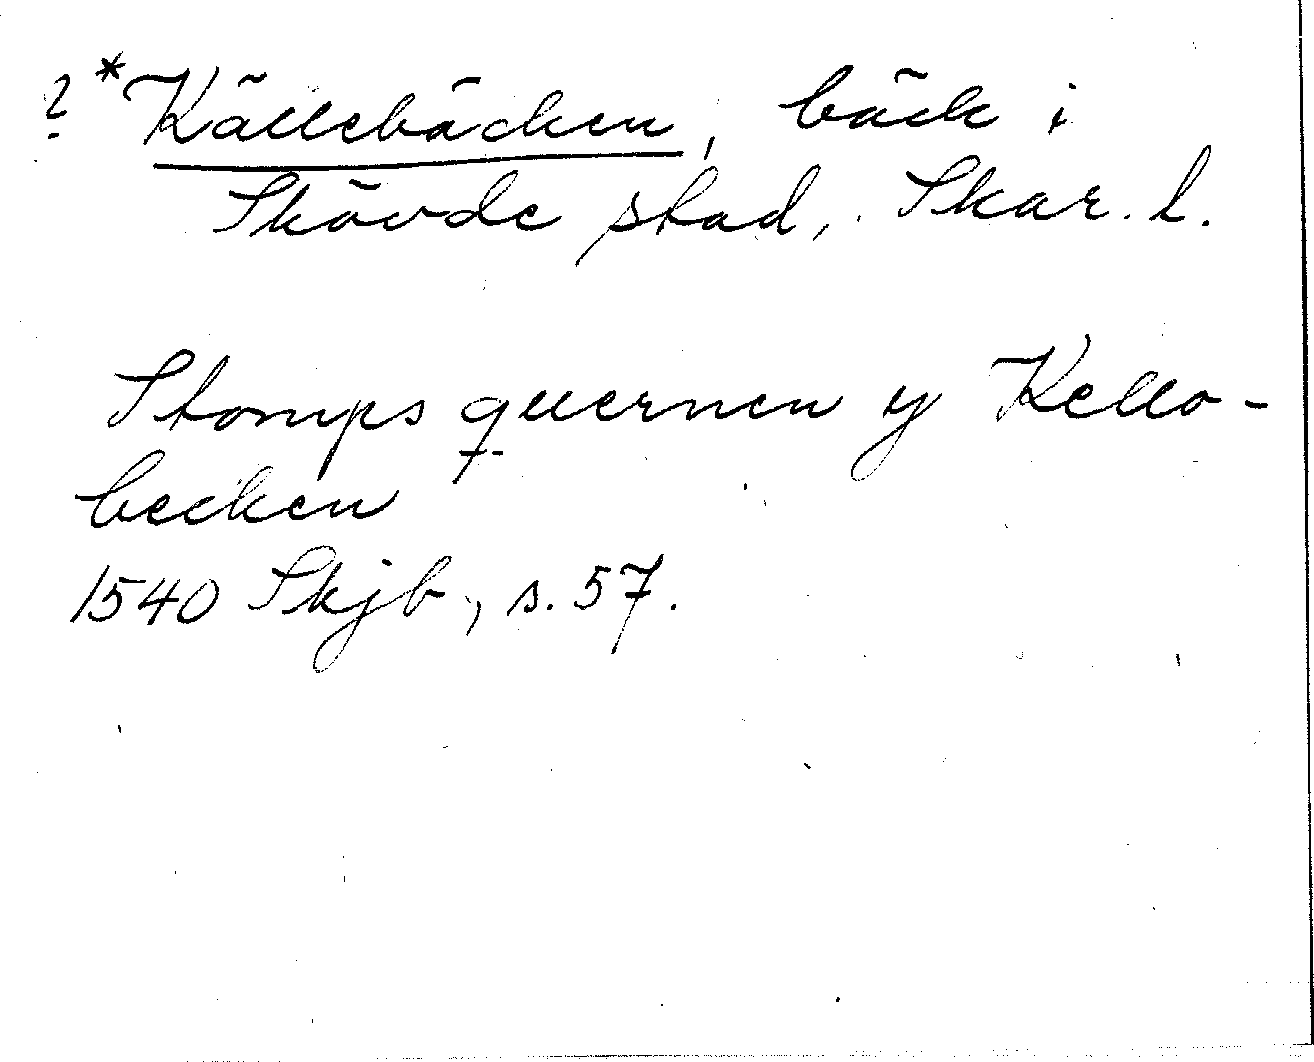 ? *Källebäcken, bäck i
Skövde stad, Skar. l.
Stomps quernen y Kello-
becken
1540 Skjb, s. 57.